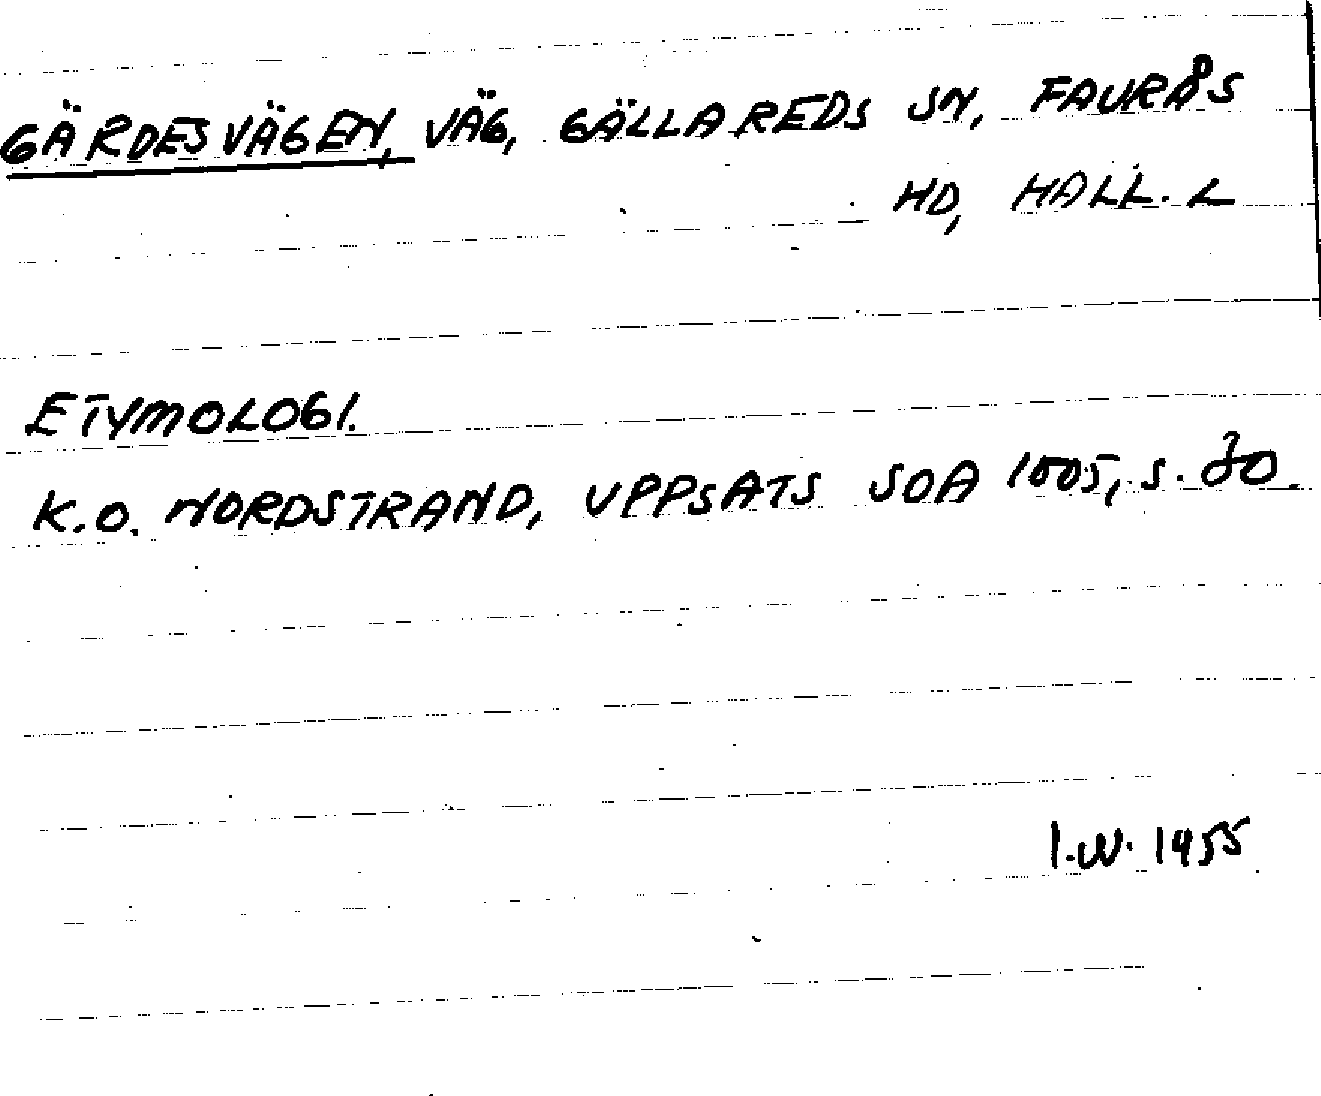 GÄRDESVÄGEN, VÄG, GÄLLAREDS SN, FAURÅS
HD, HALL. L
ETYMOLOGI.
K.O. NORDSTRAND, UPPSATS SOA 1005, s. 30.
I.W. 1955